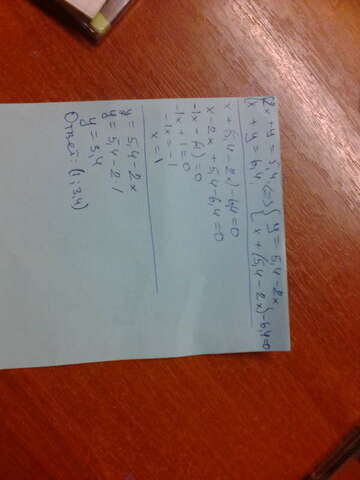 {2x + y = 5,4 <=> {y = 5,4 - 2x
{x + y = 6,4 {x + (5,4 - 2x) - 6,4 = 0
x + 5,4 - 2x) - 6,4 = 0
x - 2x + 5,4 - 6,4 = 0
-1x + 1 = 0
-1x = -1
x = 1
y = 5,4 - 2x
y = 5,4 - 2·1
y = 3,4
Ответ: (1; 3,4)